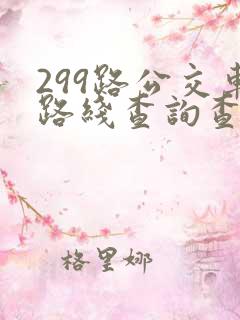 299路公交车
路线查詢查
格里娜